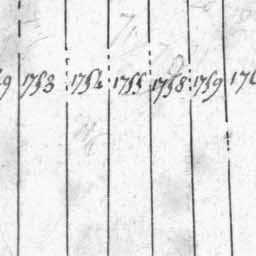 1753 1754 1755 1758 1759